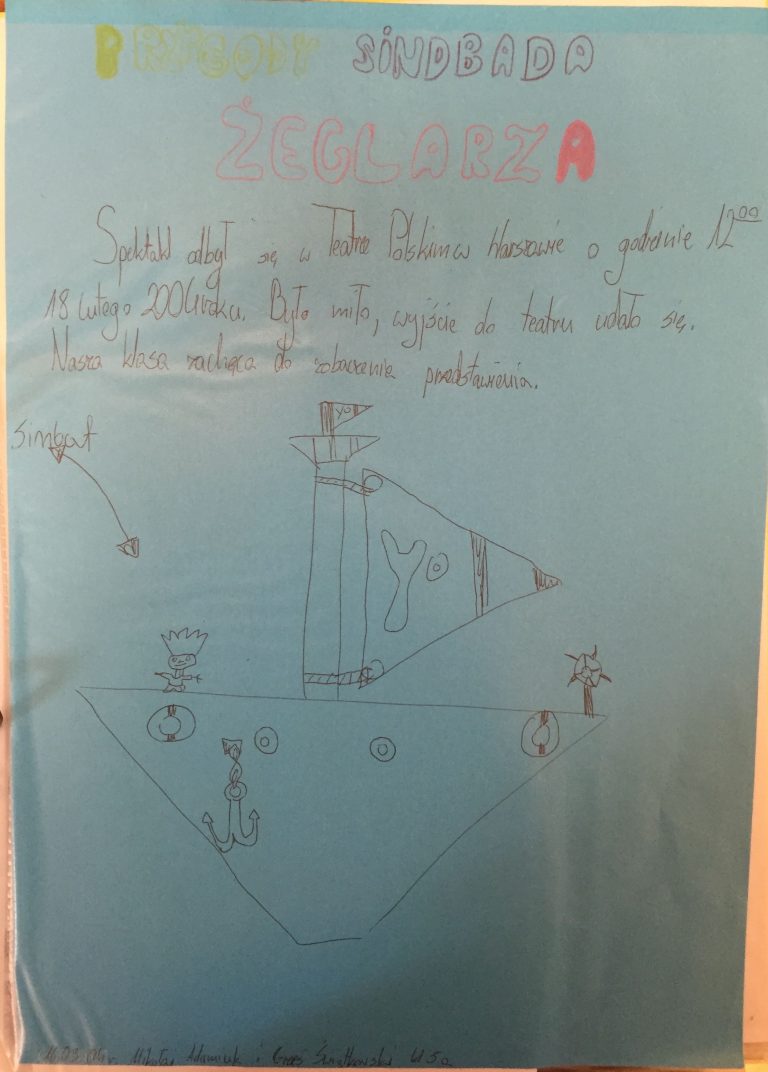 PRZYGODY SINDBADA
ŻEGLARZA
Spektakl odbył się w Teatrze Polskim w Warszawie o godzinie 12⁰⁰
18 lutego 2004 roku. Było miło, wyjście do teatru udało się.
Nasza klasa zachęca do zobaczenia przedstawienia.
Simbat
yo
Yo
Mikołaj Adamiuk i Świątkowski